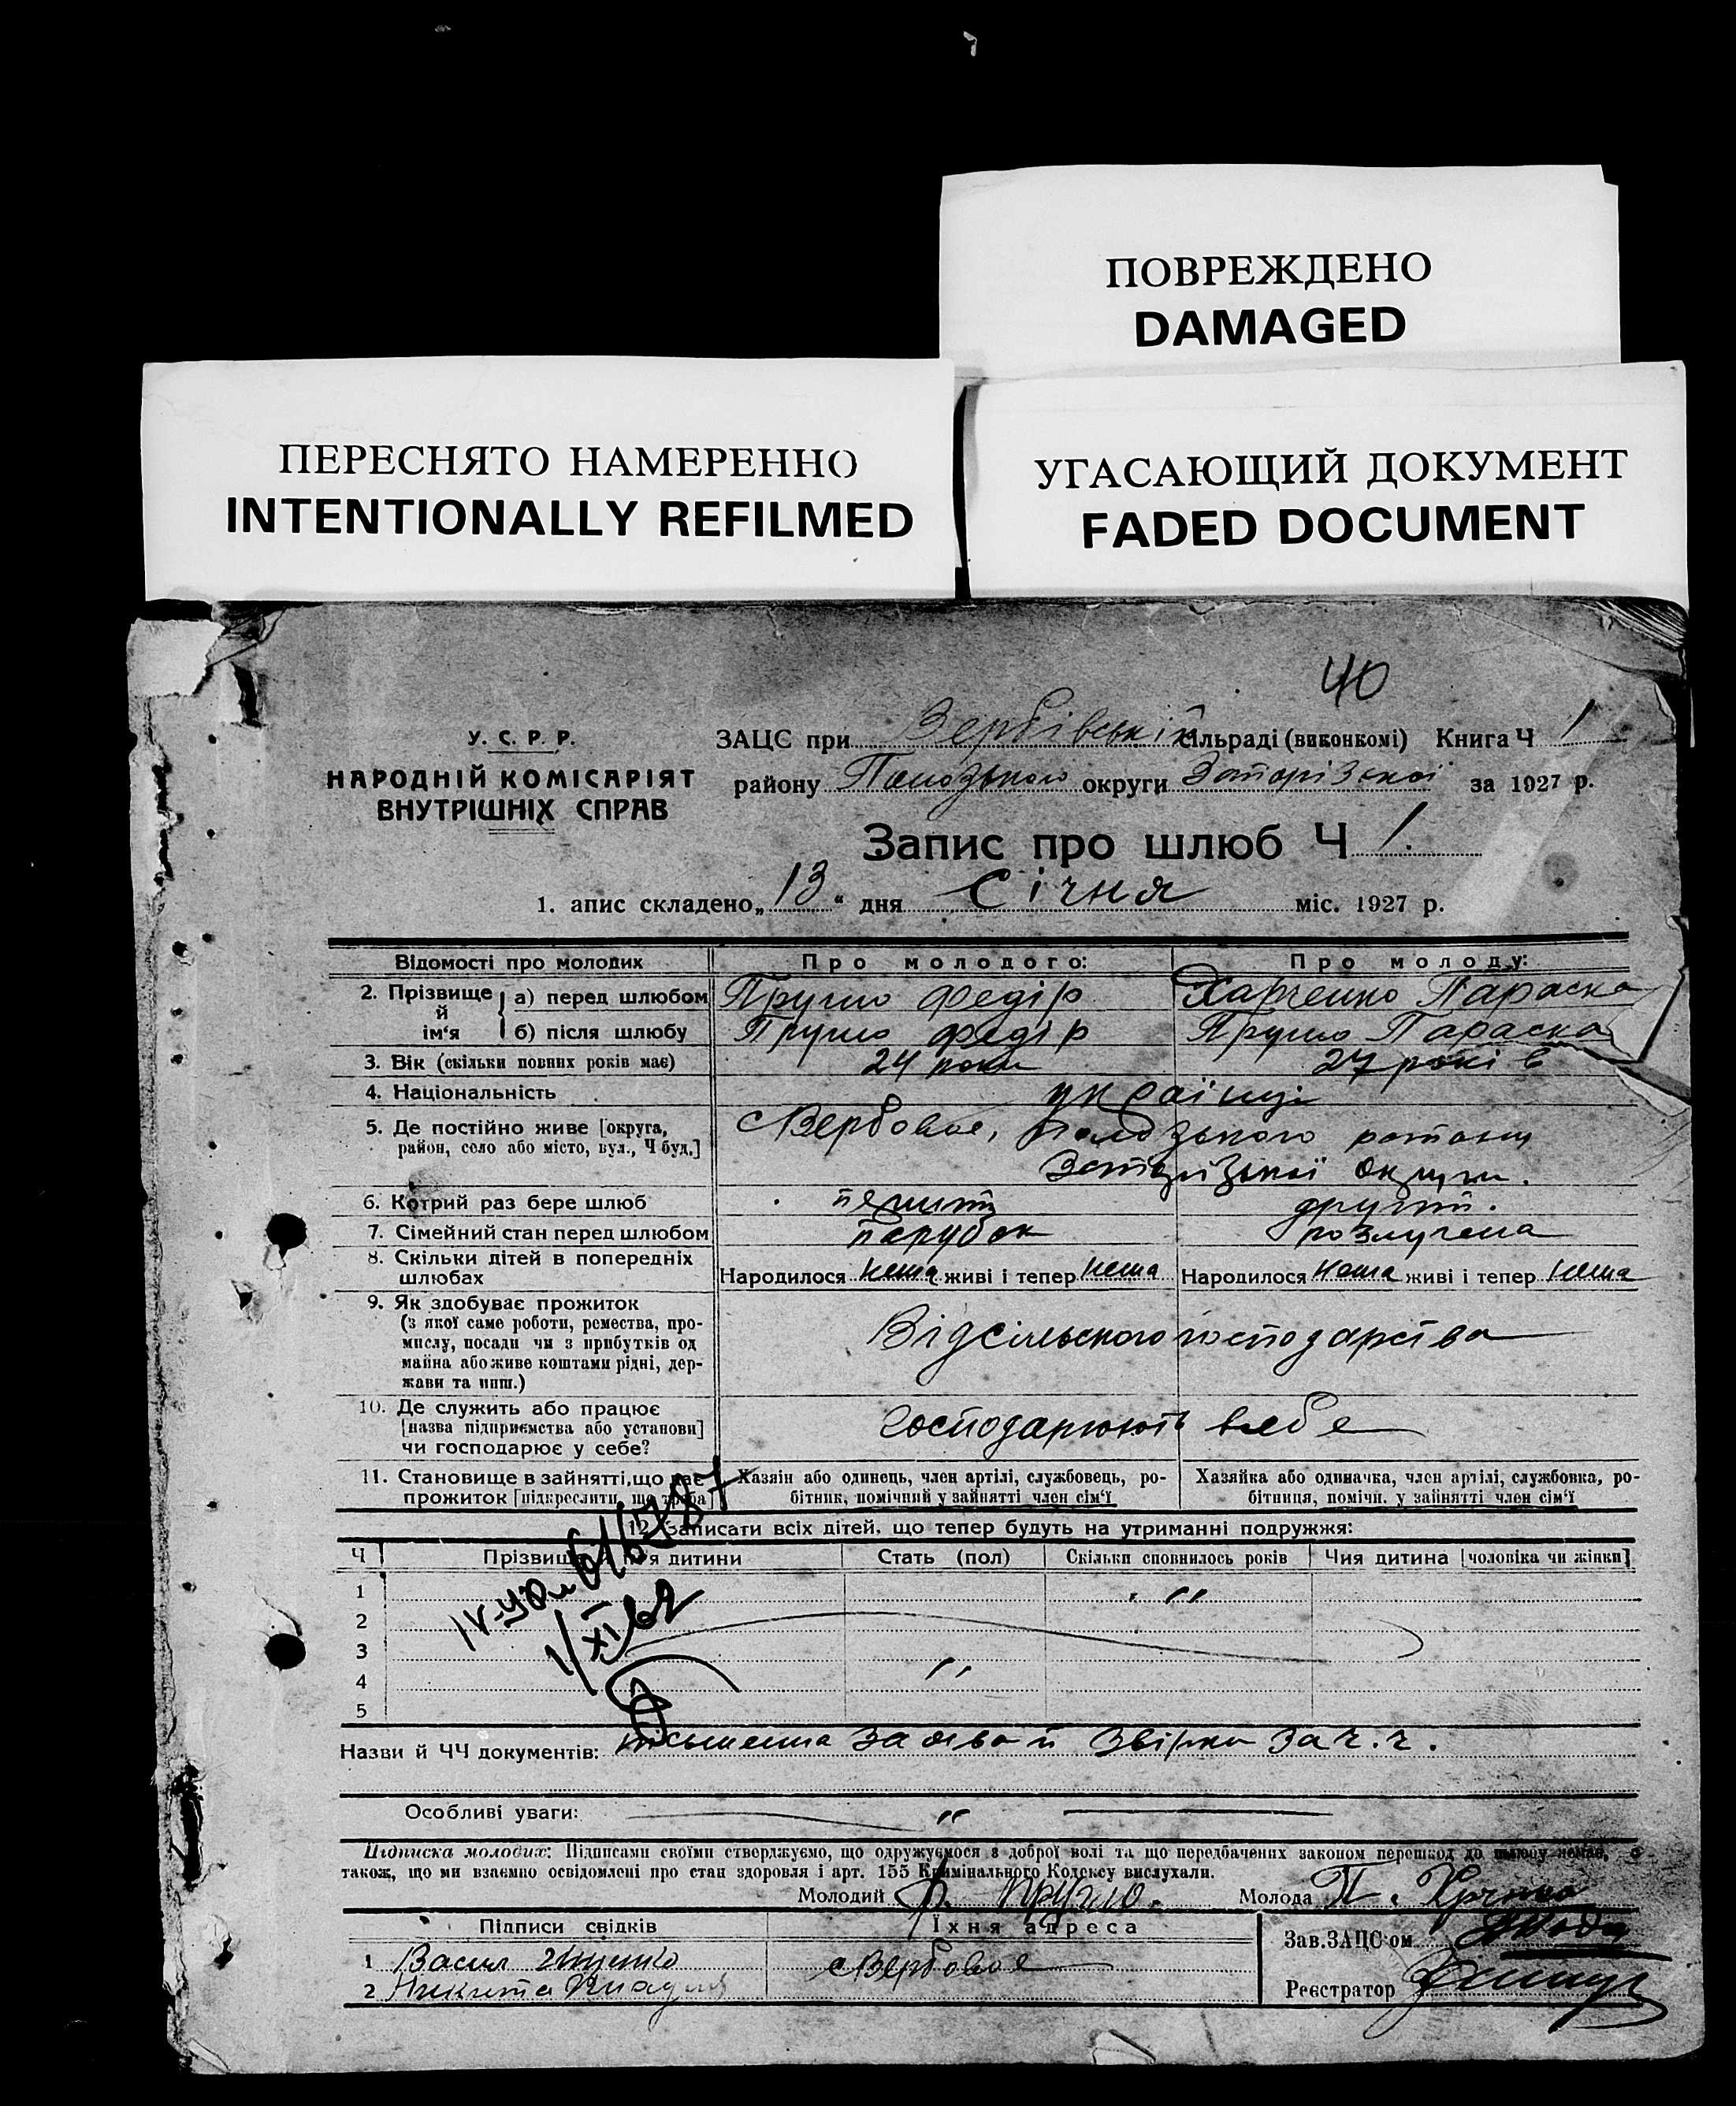 ПОВРЕЖДЕНО
DAMAGED
ПЕРЕСНЯТО НАМЕРЕННО
INTENTIONALLY REFILMED
УГАСАЮЩИЙ ДОКУМЕНТ
FADED DOCUMENT
40
У. С. Р. Р.
НАРОДНІЙ КОМІСАРІЯТ
ВНУТРІШНІХ СПРАВ
ЗАЦС при Вербівській сільраді (виконкомі) Книга Ч 1
району Пологського округи Запорізської за 1927 р.
Запис про шлюб Ч 1.
1. апис складено „13“ дня Січня міс. 1927 р.
Відомості про молодих Про молодого: Про молоду:
2. Прізвище й ім'я а) перед шлюбом Пругло Федір Харченко Параска
б) після шлюбу Пругло Федір Пругло Параска
3. Вік (скільки повних років має) 24 роки 27 років
4. Національність українці
5. Де постійно живе [округа, район, село або місто, вул., Ч буд.] с Вербове, району
округи.
6. Котрий раз бере шлюб перший другий.
7. Сімейний стан перед шлюбом парубок розлучена
8. Скільки дітей в попередніх шлюбах Народилося нема живі і тепер нема Народилося нема живі і тепер нема
9. Як здобуває прожиток
(з якої саме роботи, ремества, про-
мислу, посади чи з прибутків од
майна або живе коштами рідні, дер-
жави та инш.)
Від сільського господарства
10. Де служить або працює
[назва підприємства або установи]
чи господарює у себе?
господарюють в себе
11. Становище в зайнятті, що дає
прожиток [підкреслити, що треба]
Хазяїн або одинець, член артілі, службовець, ро-
бітник, помічний у зайнятті член сім'ї
Хазяйка або одиначка, член артілі, службовка, ро-
бітниця, помічн. у зайнятті член сім'ї
12. Записати всіх дітей, що тепер будуть на утриманні подружжя:
Ч Прізвище й ім'я дитини Стать (пол) Скільки сповнилось років Чия дитина [чоловіка чи жінки]
1
2
3
4
5
1/XI 62
Назви й ЧЧ документів: письменна заява й
Особливі уваги:
Підписка молодих: Підписами своїми стверджуємо, що одружуємося з доброї волі та що передбачених законом перешкод до шлюбу немає, а
також, що ми взаємно освідомлені про стан здоровля і арт. 155 Кримінального Кодексу вислухали.
Молодий Ф. Пругло. Молода П.
Підписи свідків Їхня адреса
Зав. ЗАЦС'ом
1 Васил с Вербове
2 Никита
Реєстратор